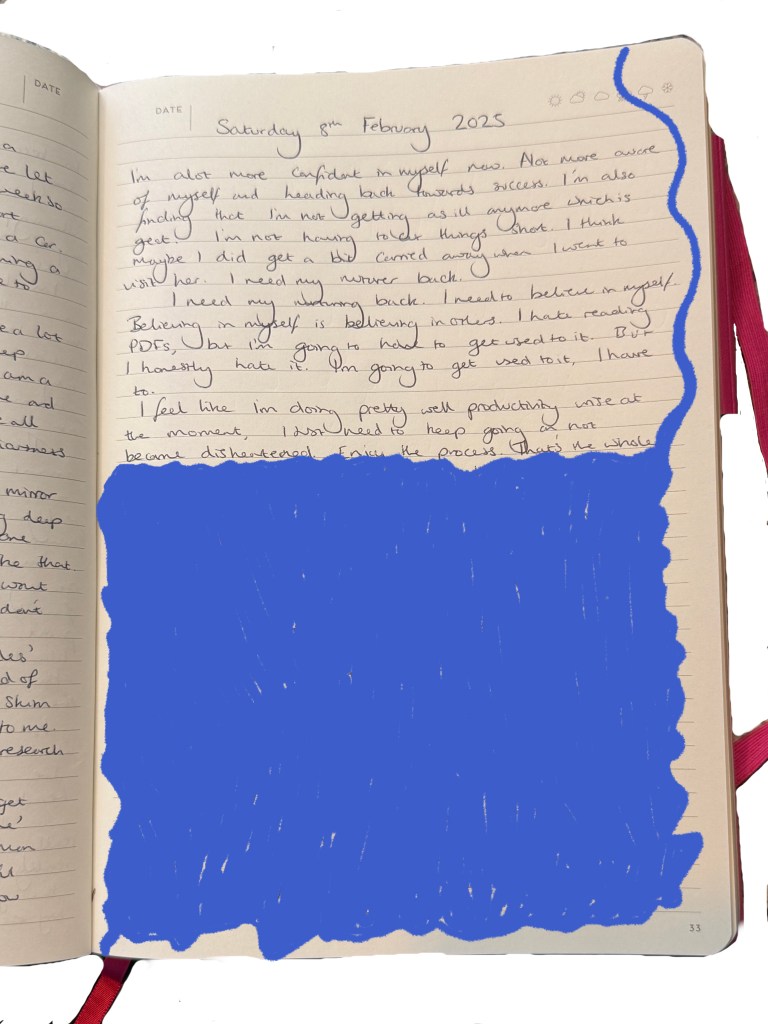 a
DATE
e let
week so
rt
a car.
ning a
e to
e a lot
ep
am a
e and
e all
iousness
mirror
g deep
one
he that
wont
don't
les'
d of
Skim
to me.
research
get
e'
ow
DATE
Saturday 8th February 2025
I'm alot more confident in myself now. Alot more aware
of myself and heading back towards success. I'm also
finding that I'm not getting as ill anymore which is
great! I'm not having to cut things short. I think
maybe I did get a bit carried away when I went to
visit her. I need my nurturer back.
I need my back. I need to believe in myself.
Believing in myself is believing in others. I hate reading
PDFs, but I'm going to have to get used to it. But
I honestly hate it. I'm going to get used to it, I have
to.
I feel like I'm doing pretty well productivity wise at
the moment, I just need to keep going & not
become disheartened. Enjoy the process. That's the whole
33